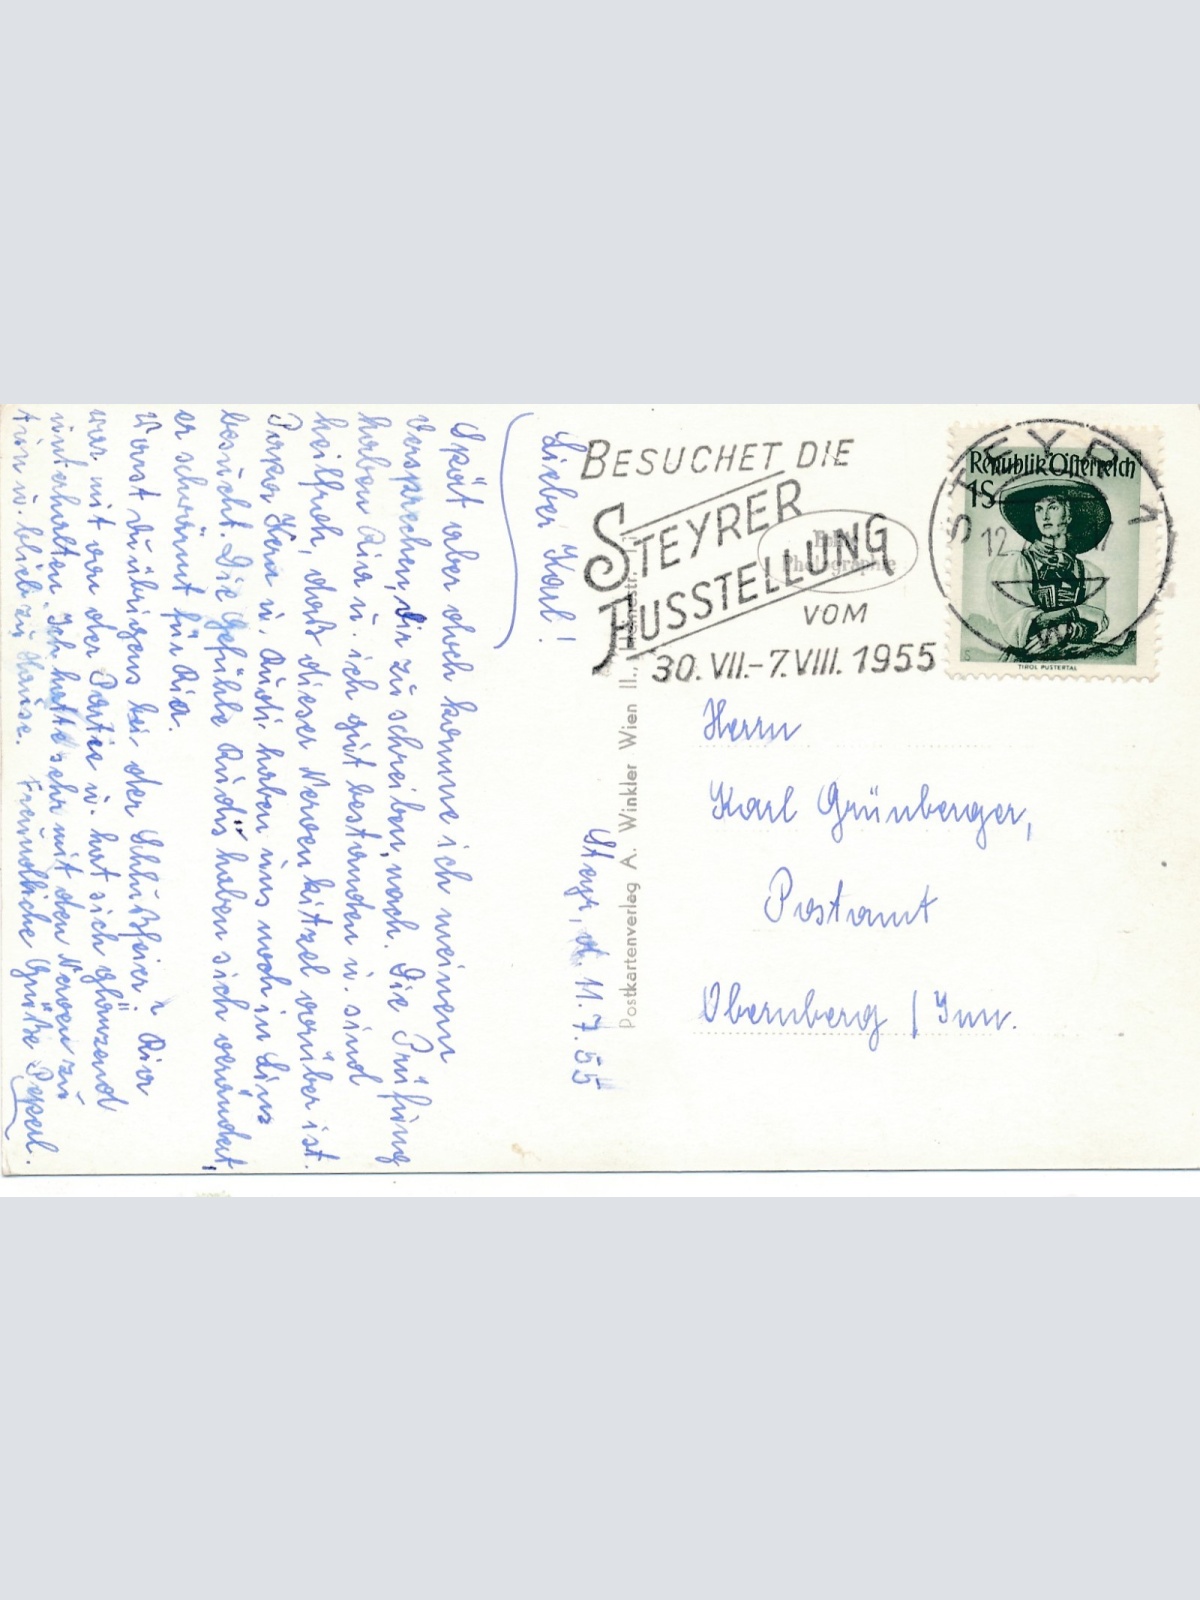 BESUCHET DIE
STEYRER
AUSSTELLUNG
VOM
30. VII.-7. VIII. 1955
STEYR 1
12.
Republik Österreich
1S
TIROL PUSTERTAL
Echte
Photographie
Postkartenverlag A. Winkler Wien II.,
Herrn
Karl Grünberger,
Postamt
Obernberg / Inn.
Steyr, d. 11.7.55
Lieber Karl!
Spät aber doch komme ich meinem
Versprechen, dir zu schreiben, nach. Die Prüfung
haben Ria u. ich gut bestanden u. sind
heilfroh, daß dieser Nervenkitzel vorüber ist.
u. Rudi haben uns noch in Linz
besucht. Die Gefühle Rudis haben sich verändert,
er schwärmt für Ria.
Warst du übrigens bei der Schlußfeier? Ria
war mit von der Partie u. hat sich glänzend
unterhalten. Ich hatte sehr mit den Nerven zu
tun u. blieb zu Hause. Freundliche Grüße Peperl.